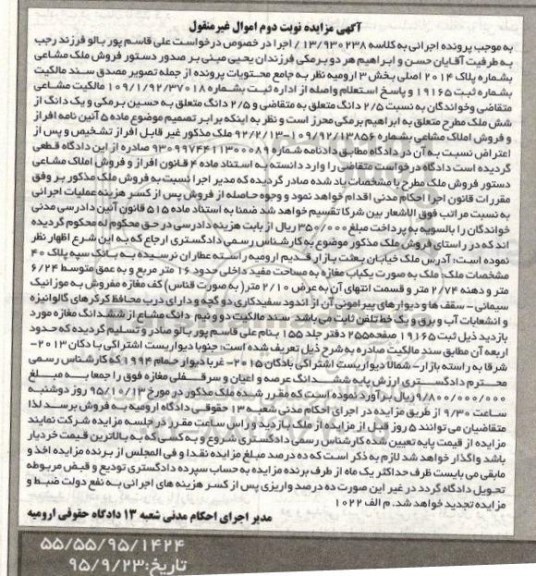 آگهی مزایده نوبت دوم اموال غیرمنقول
به موجب پرونده اجرائی به کلاسه ۱۳/۹۳۰۲۳۸ / اجرا در خصوص درخواست علی قاسم پور بالو فرزند رجب
به طرفیت آقایان حسن و ابراهیم هر دو برمکی فرزندان یحیی مبنی بر صدور دستور فروش ملک مشاعی
بشماره پلاک ۲۰۱۴ اصلی بخش ۳ ارومیه نظر به جامع محتویات پرونده از جمله تصویر مصدق سند مالکیت
بشماره ثبت ۱۹۱۶۵ و پاسخ استعلام واصله از اداره ثبت بشماره ۱۰۹/۱/۹۲/۳۷۰۱۸ مالکیت مشاعی
متقاضی وخواندگان به نسبت ۲/۵ دانگ متعلق به متقاضی و ۲/۵ دانگ متعلق به حسین برمکی و یک دانگ از
شش ملک مطرح متعلق به ابراهیم برمکی محرز است و نظر به اینکه برابر تصمیم موضوع ماده ۵ آئین نامه افراز
و فروش املاک مشاعی بشماره ۱۰۹/۹۲/۱۳۸۵۶-۹۲/۲/۱۳ ملک مذکور غیر قابل افراز تشخیص و پس از
اعتراض نسبت به آن در دادگاه مطابق دادنامه شماره ۹۳۰۹۹۷۴۴۱۱۳۰۰۰۸۹ صادره از این دادگاه قطعی
گردیده است دادگاه درخواست متقاضی را وارد دانسته به استناد ماده ۴ قانون افراز و فروش املاک مشاعی
دستور فروش ملک مطرح با مشخصات یاد شده صادر گردیده که مدیر اجرا نسبت به فروش ملک مذکور بر وفق
مقررات قانون اجرا احکام مدنی اقدام خواهد نمود و وجوه حاصله از فروش پس از کسر هزینه عملیات اجرائی
به نسبت مراتب فوق الاشعار بین شرکا تقسیم خواهد شد ضمنا به استناد ماده ۵۱۵ قانون آئین دادرسی مدنی
خواندگان را بالسویه به پرداخت مبلغ ۳۵۰/۰۰۰ ریال از بابت هزینه دادرسی در حق محکوم له محکوم گردیده
اند که در راستای فروش ملک مذکور موضوع به کارشناس رسمی دادگستری ارجاع که به این شرع اظهار نظر
نموده است: آدرس ملک خیابان بعثت بازار قدیم ارومیه راسته عطاران نرسیده به بانک سپه پلاک ۴۰
مشخصات ملک: ملک به صورت یکباب مغازه به مساحت مفید داخلی حدود ۱۶ متر مربع و به عمق متوسط ۶/۲۴
متر و دهنه ۲/۷۴ متر و قسمت انتهای آن به عرض ۲/۱۰ متر( به صورت قناس) کف مغازه مفروش به موزائیک
سیمانی- سقف ها و دیوارهای پیرامونی آن از اندود سفیدکاری دو گچه و دارای درب محافظ کرکره‌ای گالوانیزه
و انشعابات آب و برق و یک خط تلفن ثابت می باشد سند مالکیت دو و نیم دانگ مشاع از ششدانگ مغازه مورد
بازدید ذیل ثبت ۱۹۱۶۵ صفحه ۲۵۵ دفتر جلد ۱۵۵ بنام علی قاسم پور بالو صادر و تسلیم گردیده که حدود
اربعه آن مطابق سند مالکیت صادره به شرح ذیل تعریف شده است: جنوبا دیواریست اشتراکی با دکان ۲۰۱۳-
شرقا به راسته بازار- شمالا دیواریست اشتراکی بادکان ۲۰۱۵- غربا دیوار حمام ۱۹۹۴ که کارشناس رسمی
محترم دادگستری ارزش پایه ششدانگ عرصه و اعیان و سرقفلی مغازه فوق را جمعا به مبلغ
۹/۸۰۰/۰۰۰/۰۰۰ ریال برآورد نموده است که مقرر شده ملک مذکور در مورخ ۹۵/۱۰/۱۳ روز دوشنبه
ساعت ۹/۳۰ از طریق مزایده در اجرای احکام مدنی شعبه ۱۳ حقوقی دادگاه ارومیه به فروش برسد لذا
متقاضیان می توانند ۵ روز قبل از مزایده از ملک بازدید و راس ساعت مقرر در جلسه مزایده شرکت نمایند
مزایده از قیمت پایه تعیین شده کارشناس رسمی دادگستری شروع و به کسی که به بالاترین قیمت خریدار
باشد واگذار خواهد شد لازم به ذکر است که ده درصد مبلغ مزایده نقدا و فی المجلس از برنده مزایده اخذ و
مابقی می بایست ظرف حداکثر یک ماه از طرف برنده مزایده به حساب سپرده دادگستری تودیع و قبض مربوطه
تحویل دادگاه گردد در غیر این صورت ده درصد واریزی پس از کسر هزینه های اجرائی به نفع دولت ضبط و
مزایده تجدید خواهد شد. م الف ۱۰۲۲
مدیر اجرای احکام مدنی شعبه ۱۳ دادگاه حقوقی ارومیه
۵۵/۵۵/۹۵/۱۴۲۴
تاریخ: ۹۵/۹/۲۳